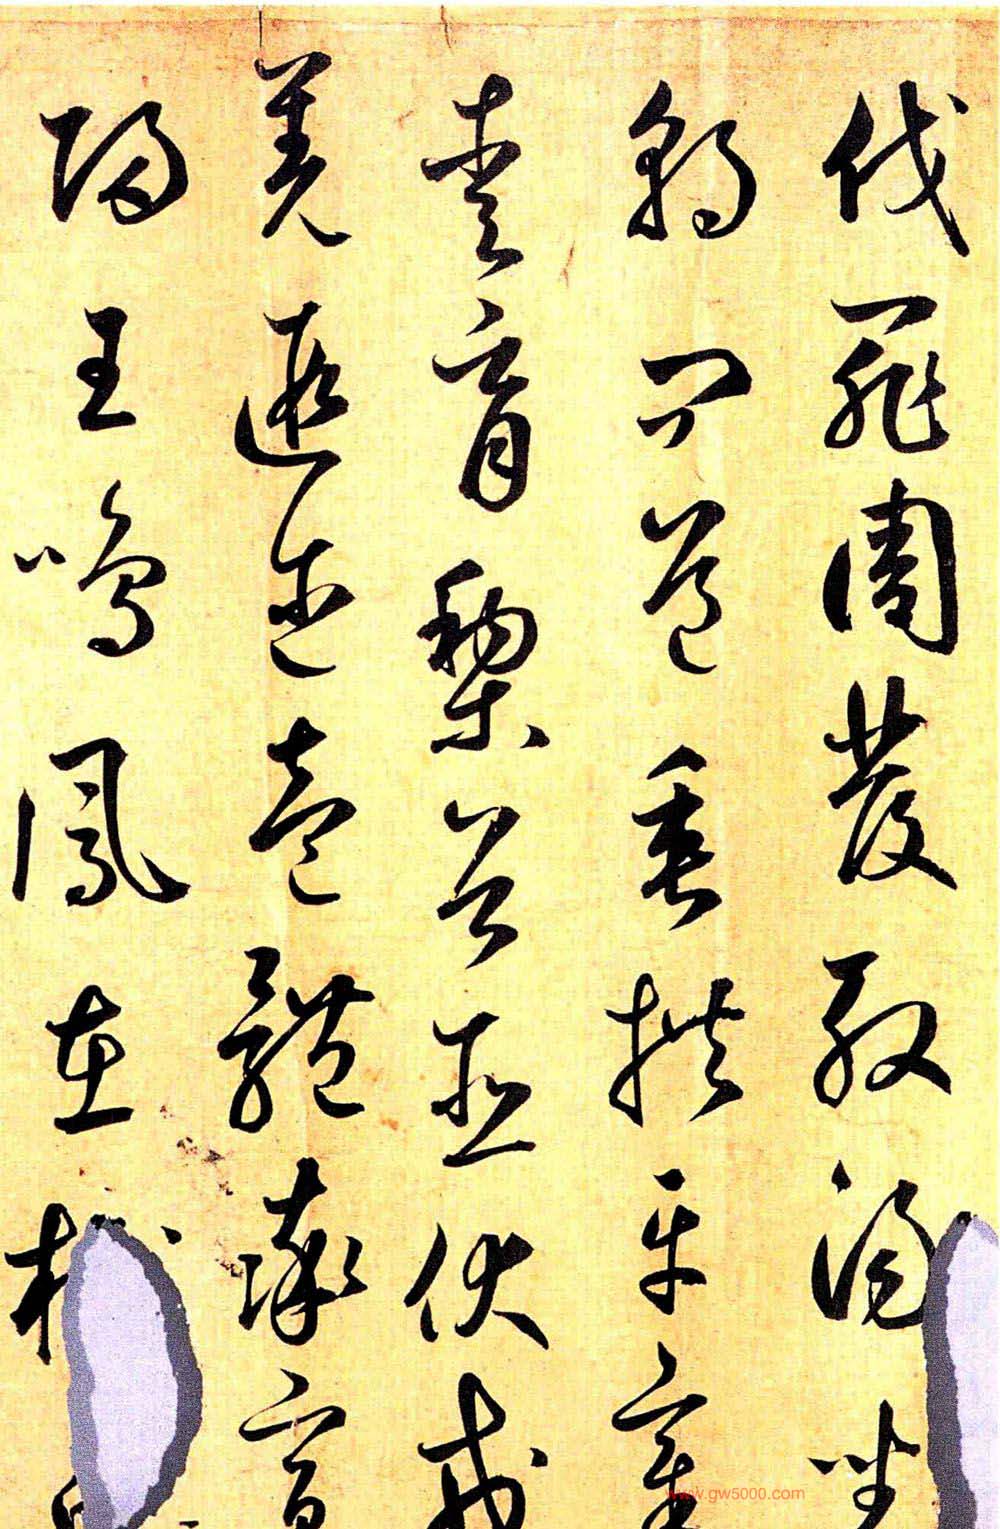 伐罪周發殷湯坐
朝問道垂拱平章
愛育黎首臣伏戎
羌遐邇壹體率賓
歸王鳴鳳在樹
www.gw5000.com